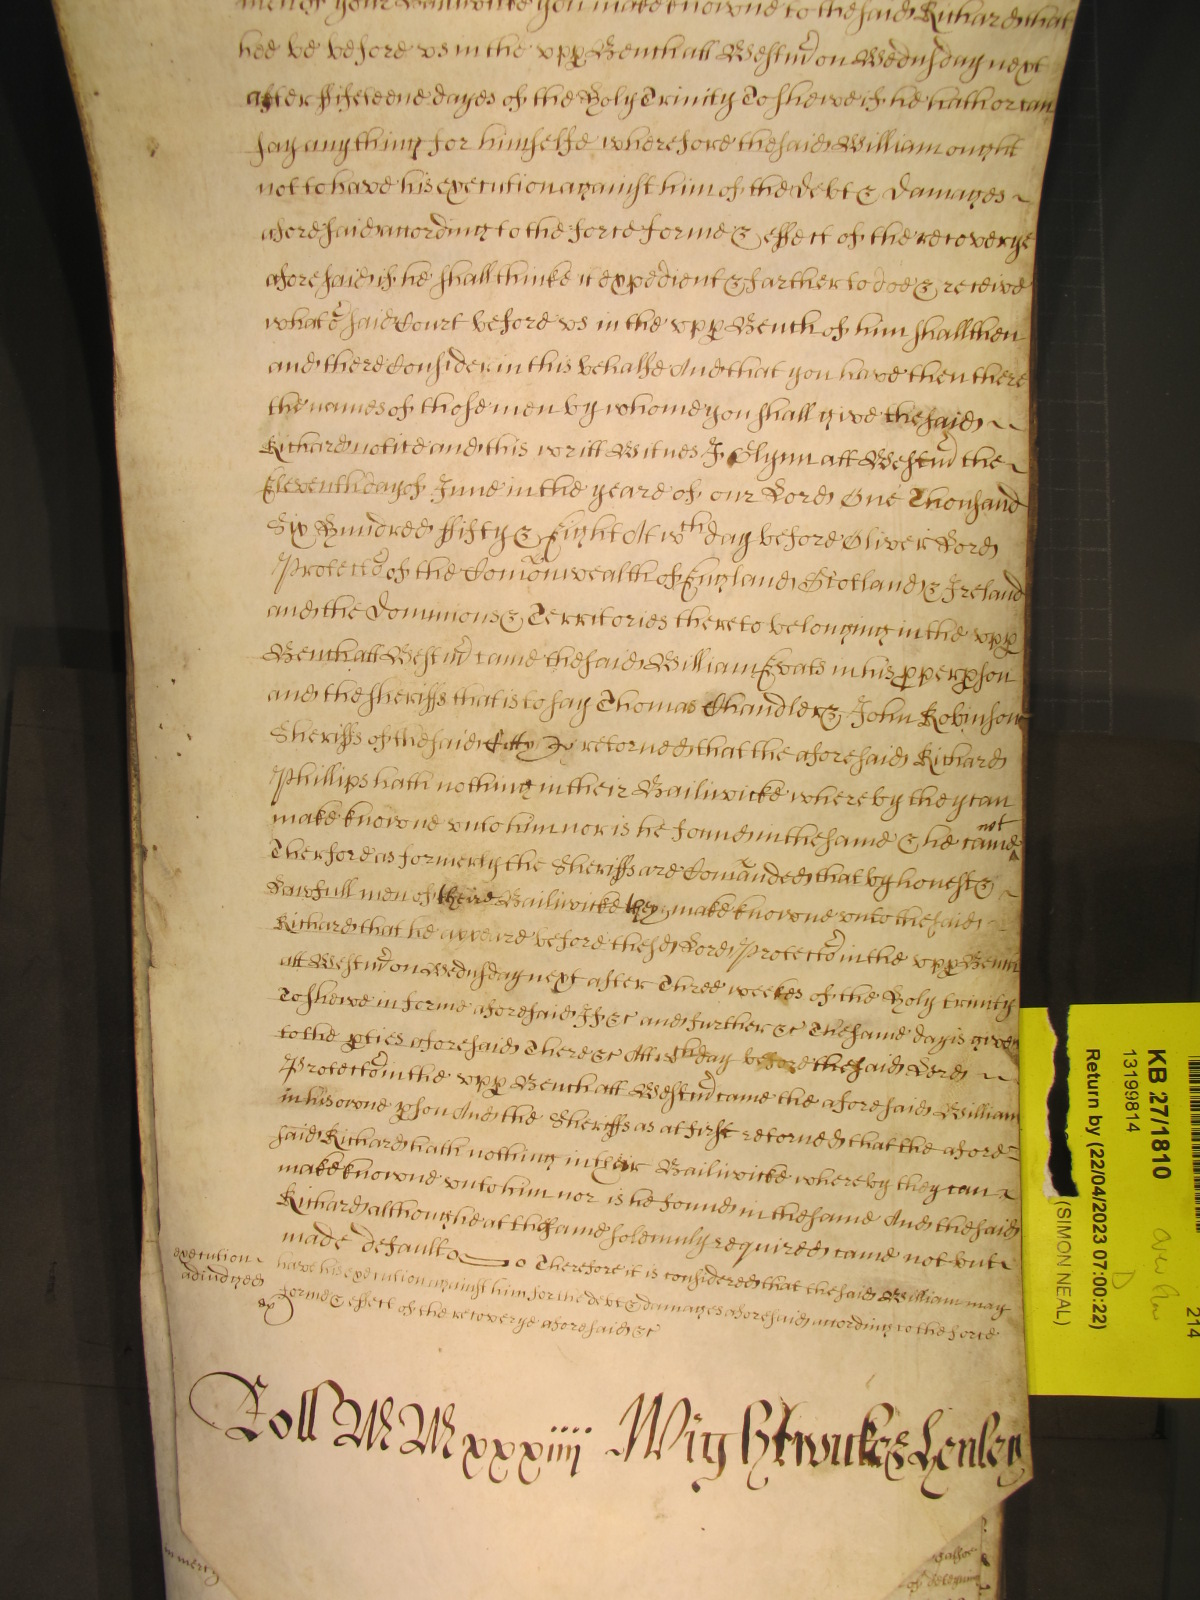 men of your Bailiwicke you make knowne to the said Richard that
hee be before us in the upp Bench att Westmr on Wednsday next
after fifeteene dayes of the Holy Trinity To shewe if he hath or can
say any thing for himselfe wherefore the said William ought
not to have his execution against him of the Debt & Damages
aforesaid according to the force forme & effect of the recoverye
aforesaid if he shall thinke it expedient & farther to doe & receive
what ye said Court before us in the upp Bench of him shall then
and there Consider in this behalfe And that you have then there
the names of those men by whome you shall give the said
Richard notice and this writt Witnes J Glynn att Westmr the
Eleventh day of June in the yeare of our Lord One Thousand
Six Hundred fifty & Eight At wch day before Oliver Lord
Protector of the Comonwealth of England Scotland & Ireland
and the Dominions & Territories thereto belonging in the upp
Bench att Westmr came the said William Evats in his pper pson
and the sheriffs that is to say Thomas Chandler & John Robinson
Sheriffs of the said Citty retorned that the aforesaid Richard
Phillips hath nothing in their Bailiwicke whereby they can
make knowne unto him nor is he found in the same & he came not
Therfore as formerly the Sheriffs are Comanded that by honest &
Lawfull men of their Bailiwicke they make knowne unto the said
Richard that he appeare before the sd Lord Protector in the upp Bench
att Westmr on Wednsday next after Three weekes of the Holy trinity
To shewe in forme aforesaid If &c and further &c The same day is given
to the pties aforesaid There &c Att wch day before the said Lord
Protector in the upp Bench att Westmr came the aforesaid William
in his owne pson And the Sheriffs as at first retorned that the afore=
said Richard hath nothing in their Bailiwicke whereby they can
make knowne unto him nor is he found in the same And the said
Richard although he at the same solemnly required came not but
made default Therefore it is considered that the said William may
have his execution against him for the debt & damages aforesaid according to the force
forme & effect of the recoverye aforesaid &c
execution
adiudged
ex
Roll MMxxxiiii Wightwicke & Henley
in mercy
KB 27/1810
13199814
Return by (22/04/2023 07:00:22)
(SIMON NEAL)
214
D